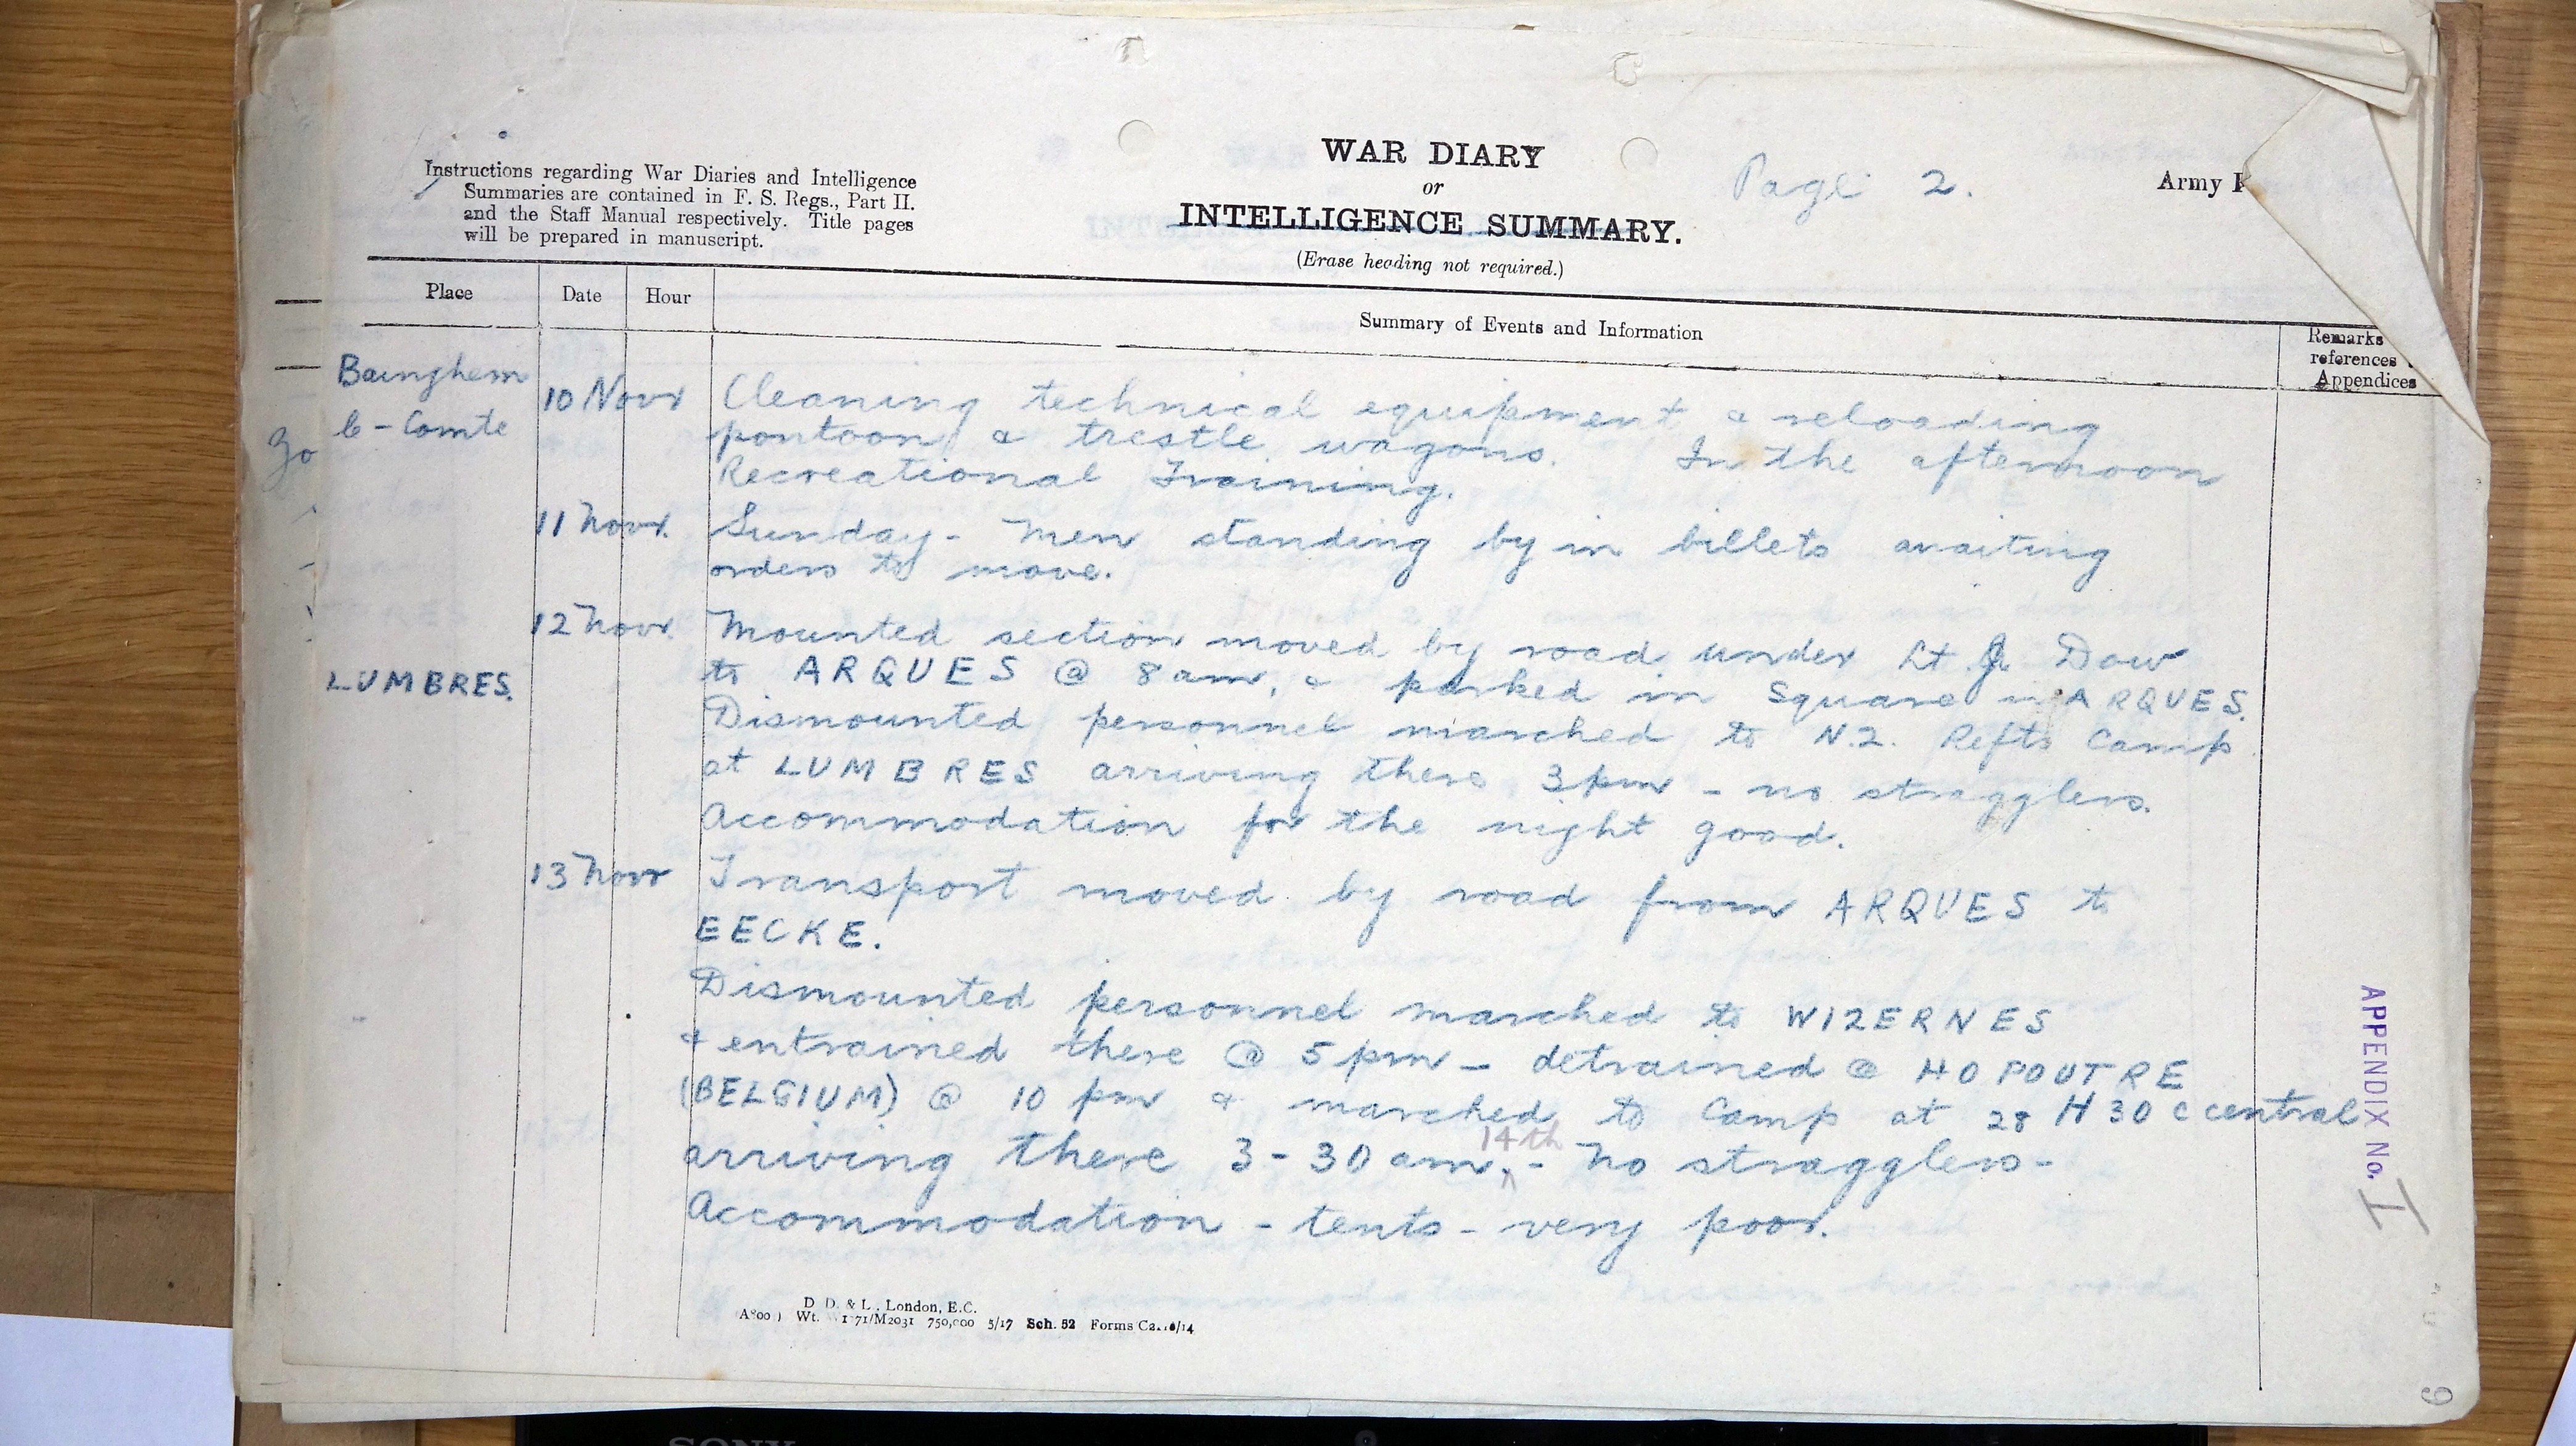 Instructions regarding War Diaries and Intelligence
Summaries are contained in F. S. Regs., Part II.
and the Staff Manual respectively. Title pages
will be prepared in manuscript.
WAR DIARY
or
INTELLIGENCE SUMMARY.
(Erase heading not required.)
Page 2.
Army
Place
Date
Hour
Summary of Events and Information
Remarks
references
Appendices
Bainghem
le-Comte
10 Novr
Cleaning technical equipment & reloading
pontoon & trestle wagons. In the afternoon
Recreational Training.
11 Novr.
Sunday - Men standing by in billets awaiting
orders to move.
12 Novr.
Mounted section moved by road under Lt. J. Dow
LUMBRES.
to ARQUES @ 8 am, & parked in Square in ARQUES.
Dismounted personnel marched to N.2. Refts Camp
at LUMBRES arriving there 3 pm - no stragglers.
Accommodation for the night good.
13 Novr
Transport moved by road from ARQUES to
EECKE.
Dismounted personnel marched to WIZERNES
& entrained there @ 5 pm - detrained @ HOPOUTRE
(BELGIUM) @ 10 pm & marched to Camp at 28 H 30 c central
arriving there 3-30 am 14th - No stragglers -
Accommodation - tents - very poor.
APPENDIX No. I
D. D. & L., London, E.C.
Wt. 750,000 5/17 Sch. 52 Forms
SONY